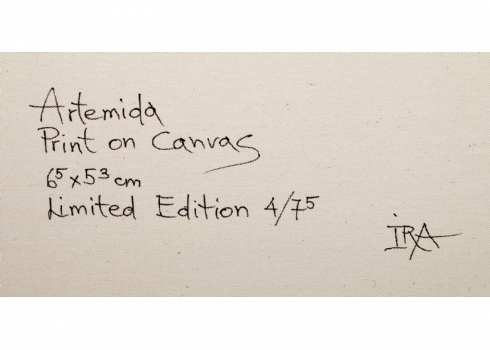 Artemida
Print on Canvas
65x53 cm
Limited Edition 4/75
IRA